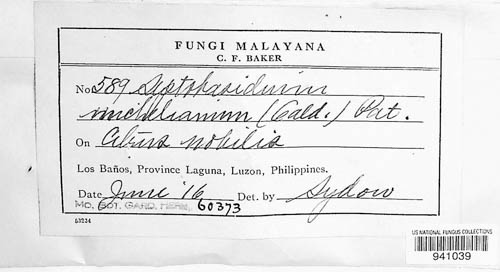 FUNGI MALAYANA
C. F. BAKER
No. 589 Septobasidium
michelianum (Cald.) Pat.
On Citrus nobilis
Los Baños, Province Laguna, Luzon, Philippines.
Date June '16 Det. by Sydow
MO. BOT. GARD. HERB. 60373
63234
US NATIONAL FUNGUS COLLECTIONS
941039